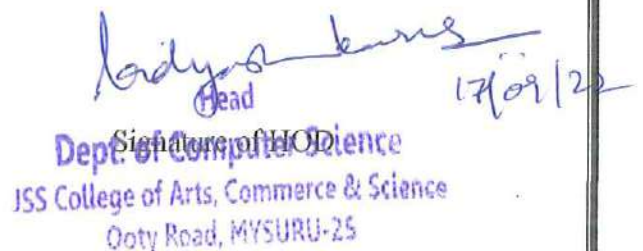 17/09/22
Head
Signature of HOD
Dept. of Computer Science
JSS College of Arts, Commerce & Science
Ooty Road, MYSURU-25